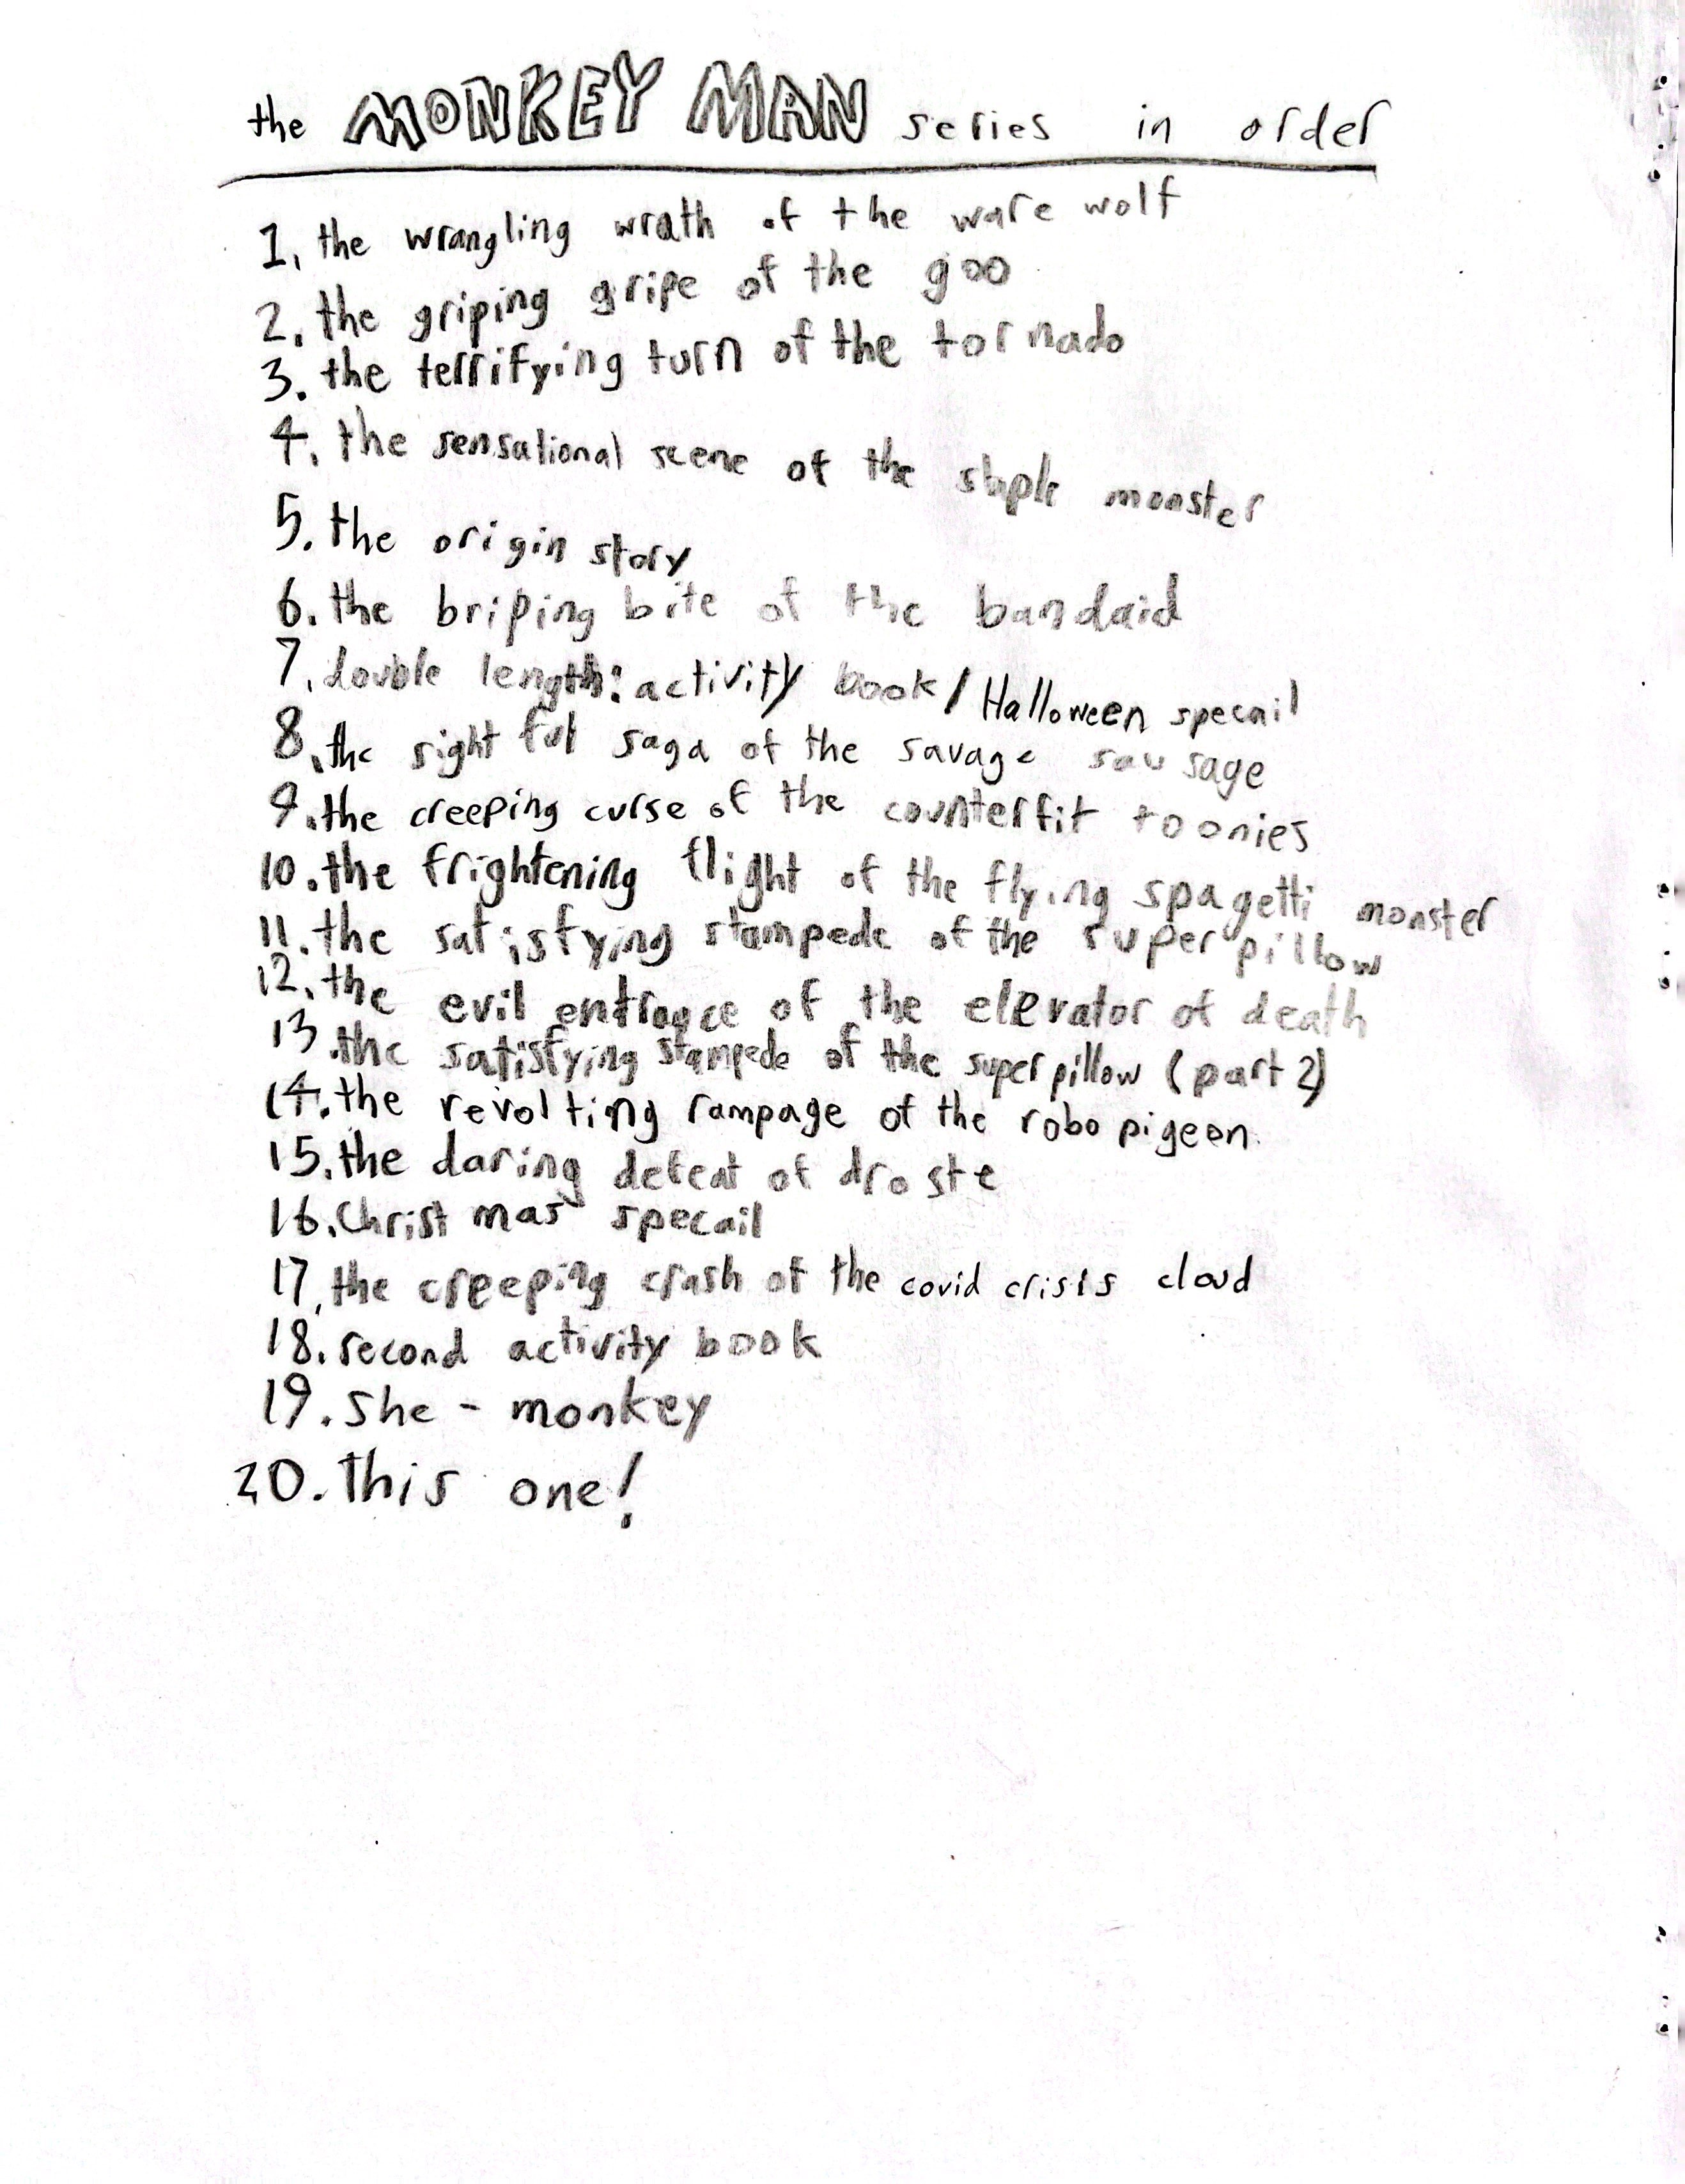 the MONKEY MAN series in order
1. the wrangling wrath of the ware wolf
2. the griping gripe of the goo
3. the terrifying turn of the tornado
4. the sensational scene of the staple monster
5. the origin story
6. the briping bite of the bandaid
7. double length: activity book / Halloween specail
8. the right ful saga of the savage sausage
9. the creeping curse of the counterfit toonies
10. the frightening flight of the flying spagetti monster
11. the satisfying stampede of the super pillow
12. the evil entrance of the elevator of death
13. the satisfying stampede of the super pillow (part 2)
14. the revolting rampage of the robo pigeon
15. the daring defeat of droste
16. Christmas specail
17. the creeping crash of the covid crisis cloud
18. second activity book
19. She - monkey
20. this one!